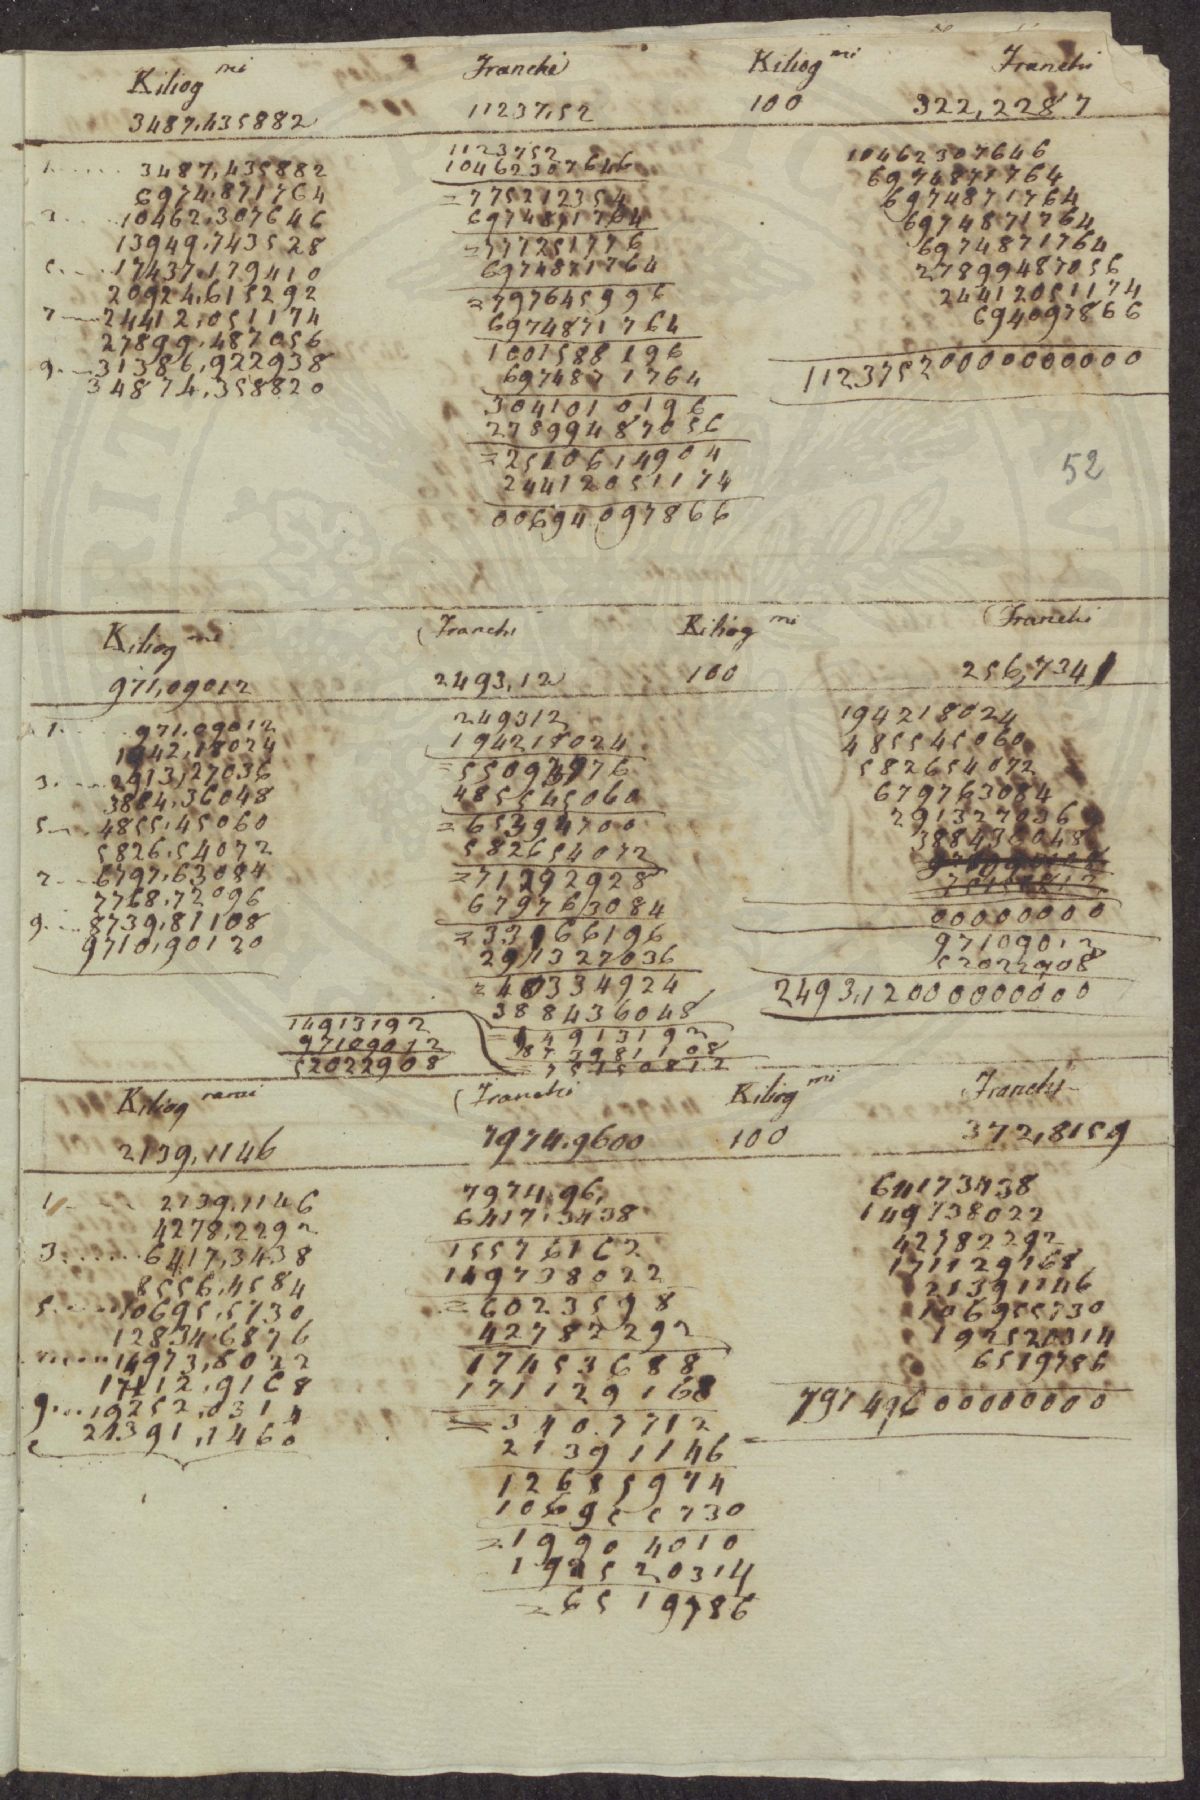 Kiliog mi Franchi Kiliog mi Franchi
3487,435882 11237,52 100 322,2287
1 3487,435882
6974,871764
3 10462,307646
13949,743528
5 17437,179410
20924,615292
7 24412,051174
27899,487056
9 31386,922938
34874,358820
1123752
10462307646
=775212354
6974871764
=777251776
6974871764
=797645996
6974871764
1001588196
6974871764
3041010196
27899487056
=2510614904
24412051174
00694097866
10462307646
6974871764
6974871764
6974871764
6974871764
27899487056
24412051174
694097866
1123752000000000
52
Kiliog mi Franchi Kiliog mi Franchi
971,09012 2493,12 100 256,734
1 971,09012
1942,18024
3 2913,27036
3884,36048
5 4855,45060
5826,54072
7 6797,63084
7768,72096
9 8739,81108
9710,90120
249312
194218024
=55093976
485545060
=65394700
582654072
=71292928
679763084
=33966196
291327036
=480334924
388436048
=14913192
873981108
=75150812
14913192
97109012
52022908
194218024
485545060
582654072
679763084
291327036
388436048
00000000
97109012
52022908
2493,120000000000
Kiliog rami Franchi Kiliog mi Franchi
2139,1146 7974,9600 100 372,8159
1 2139,1146
4278,2292
3 6417,3438
8556,4584
5 10695,5730
12834,6876
14973,8022
17112,9168
9 19252,0314
21391,1460
7974,96,
6417,3438
15576162
149738022
=6023598
42782292
17453688
171129168
=3407712
21391146
12685974
106955730
=19904010
192520314
=6519786
64173438
149738022
42782292
171129168
21391146
106955730
192520314
6519786
79749600000000